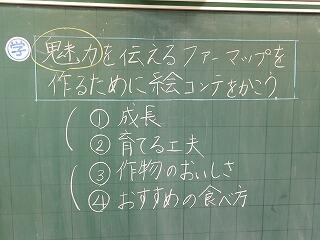 学 魅力を伝えるファーマップを
作るために絵コンテをかこう
① 成長
② 育てる工夫
③ 作物のおいしさ
④ おすすめの食べ方